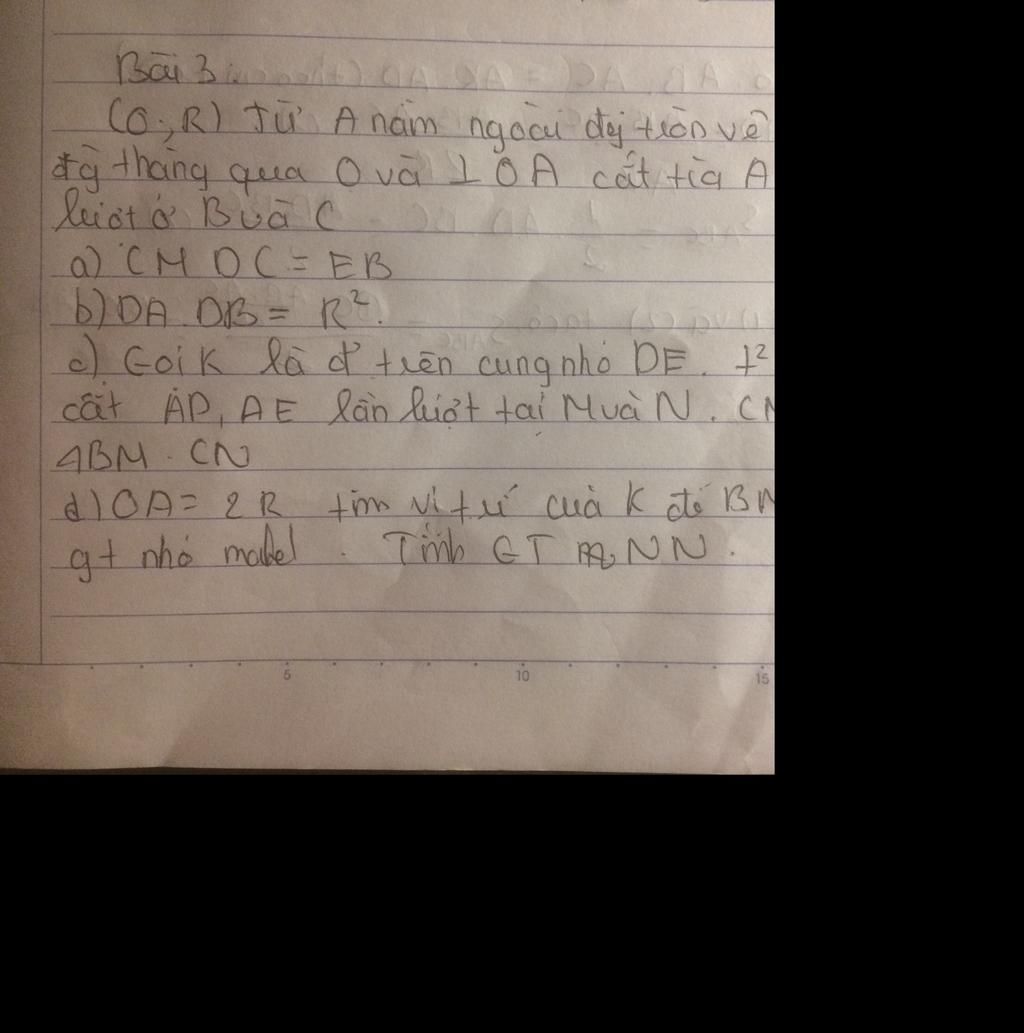 Bài 3
(O;R) Từ A nằm ngoài đg tròn vẽ
đg thẳng qua O và ⊥ OA cắt tia A
lượt ở B và C
a) CM DC = EB
b) DA. DB = R².
c) Gọi K là đ' trên cung nhỏ DE. t²
cắt AD, AE lần lượt tại M và N. CM
4BM. CN
d) OA = 2R tìm vị trí của K để BM
gt nhỏ Tính GT NN.
5 10 15